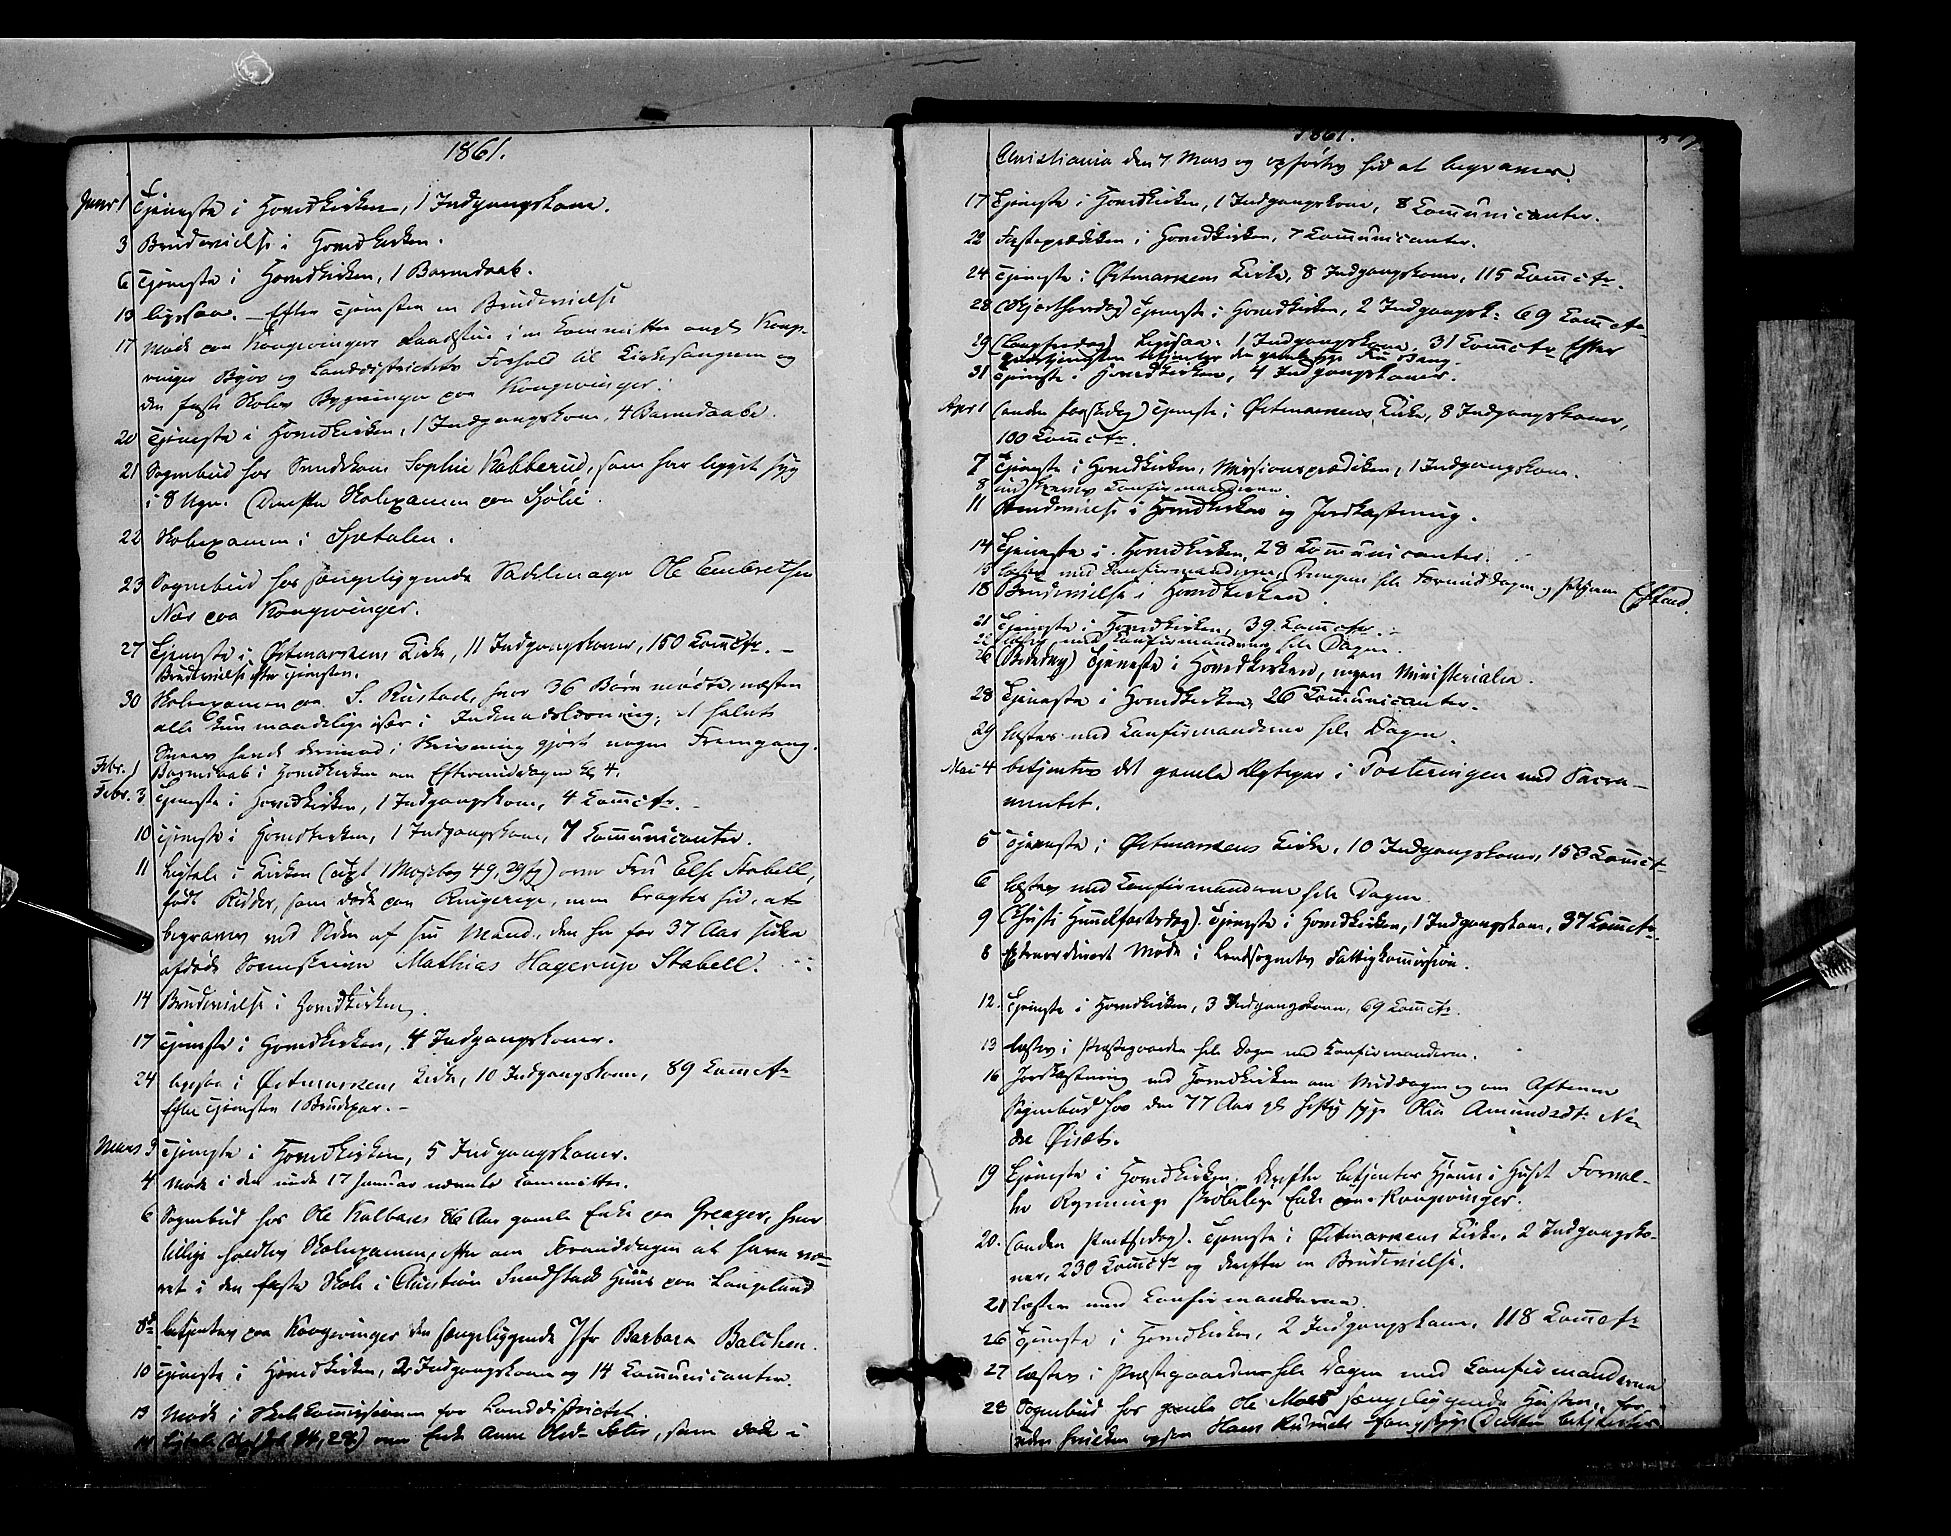 1861.
Januar 1 Tjeneste i Hovedkirken, 1 Indgangskone.
3 Brudevielse i Hovedkirken.
6 Tjeneste i Hovedkirken, 1 Barnedaab.
13 ligesaa. – Efter Tjenesten en Brudevielse
17 Møde paa Kongsvingers Raadstue i en Committee angd. Kongs-
vinger Byes og Landdistrictets Forhold til Kirkesangeren og
den faste Skoles Bygninger paa Kongsvinger.
20 Tjeneste i Hovedkirken, 1 Indgangskone, 4 Barnedaabe.
21 Sognebud hos Sophie Kabberud, som har ligget syg
i 8 Uger. Derefter Skoleexamen paa Sjølie.
22 Skoleexamen i Sætalen.
23 Sognebud hos sengeliggende Sadelmager Ole Embretsen
Næs paa Kongsvinger.
27 Tjeneste i Østmarkens Kirke, 11 Indgangskoner, 150 Comctr. –
Brudevielse efter Tjenesten.
30 Skoleexamen paa S. Rustad, hvor 36 Børn mødte, næsten
alle kun maadelige især i Indenadslæsning;
havde derimod i Skrivning gjort nogen Fremgang.
Febr. 1 Barnedaab i Hovedkirken om Eftermiddagen Kl. 4.
Febr. 3 Tjeneste i Hovedkirken, 1 Indgangskone, 4 Comctr. –
10 Tjeneste i Hovedkirken, 1 Indgangskone, 7 Communicanter.
11 Ligtale i Kirken (Txt 1 Mosebog 49, 29 fg) over Fru Else Stabell,
født Ridder, som døde paa Ringerige, men bragtes hid, at
begraves ved Siden af sin Mand, den her for 37 Aar siden
afdøde Sorenskriver Mathias Hagerup Stabell.
14 Brudevielse i Hovedkirken.
17 Tjeneste i Hovedkirken, 4 Indgangskoner.
24 ligesaa i Østmarkens Kirke, 10 Indgangskoner, 89 Comctr
Efter Tjenesten 1 Brudepar. –
Mars 3 Tjeneste i Hovedkirken, 5 Indgangskoner.
4 Møde i den under 17 Januar nævnte Committee.
6 Sognebud hos Ole Kalbaks 86 Aar gamle Enke paa Greager, hvor
tillige holdtes Skoleexamen, efter om Formiddagen at have væ-
ret i den faste Skole i Christian Sundstads Huus paa Langelund
8de betjentes paa Kongsvinger den sengeliggende Jfr Barbara Balchen.
10 Tjeneste i Hovedkirken, 2 Indgangskoner og 14 Communicanter.
13 Møde i Skolecommissionen for Landdistrictet
14 Ligtale over Enke Anne Olsd. Sætér, som døde i
1861.
Christiania den 7 Mars og opførtes hid at begraves.
17 Tjeneste i Hovedkirken, 1 Indgangskone, 8 Communicanter.
22 Fasteprædiken i Hovedkirken, 7 Communicanter.
24 Tjeneste i Østmarkens Kirke, 8 Indgangskoner, 115 Comctr.
28 (Skjærthorsdag) Tjeneste i Hovedkirken, 2 Indgangsk: 69 Comctr
29 (Langfredag) Ligesaa: 1 Indgangskone, 31 Comctr. Efter
Gudstjenesten betjentes den gamle syge Fru Bang
31 Tjeneste i Hovedkirken, 4 Indgangskoner.
Apr 1 (anden Paaskedag) Tjeneste i Østmarkens Kirke, 8 Indgangskoner,
100 Comctr.
7 Tjeneste i Hovedkirken, Missionsprædiken, 1 Indgangskone.
8 indskreves Confirmanderne.
11 Brudevielse i Hovedkirken og Jordkastning.
14 Tjeneste i Hovedkirken, 28 Communicanter.
15 læstes med Confirmanderne, Drengene hele Formiddagen, Pigerne Efterd.
18 Brudevielse i Hovedkirken.
21 Tjeneste i Hovedkirken, 39 Comctr. –
22 læstes med Confirmanderne hele Dagen.
26 (Bededag) Tjeneste i Hovedkirken, ingen Ministerialia.
28 Tjeneste i Hovedkirken, 26 Communicanter.
29 læstes med Confirmanderne hele Dagen.
Mai 4 betjentes det gamle Ægtepar i Posteringen med Sacra-
mentet.
5 Tjeneste i Østmarkens Kirke, 10 Indgangskoner, 153 Comctr
6 læstes med Confirmanderne hele Dagen
9 (Christi Himmelfartsdag). Tjeneste i Hovedkirken, 1 Indgangskone, 37 Comctr.
8 Extraordinært Møde i Landsognets Fattigkommission.
12. Tjeneste i Hovedkirken, 3 Indgangskoner, 69 Comctr.
13 læstes i Præstegaarden hele Dagen med Confirmanderne.
16 Jordkastning ved Hovedkirken om Middagen og om Aftenen
Sognebud hos den 77 Aar gl. heftig syge Olia Amundsdt. Ne-
dre Øiset.
19 Tjeneste i Hovedkirken. Derefter betjentes hjemme i Huset Forval-
ter Rynnings skrøbelige Enke paa Kongsvinger.
20. (anden Pintsedag). Tjeneste i Østmarkens Kirke, 2 Indgangsko-
ner, 230 Comctr og derefter en Brudevielse.
21 læstes med Confirmanderne.
26 Tjeneste i Hovedkirken, 2 Indgangskoner, 118 Comctr
27 læstes i Præstegaarden hele Dagen med Confirmanderne
28 Sognebud hos gamle Ole Moes sengeliggende Hustru, for-
uden hvilken ogsaa Hans